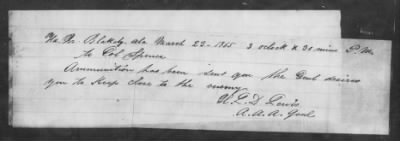 Hd Qr. Blakely Ala March 23 - 1865 3 oclock & 30 mins P.M.
to Col Spence
Ammunition has been sent you the Genl desires
you to keep close to the enemy
D. Lewis
A. A. A. Genl